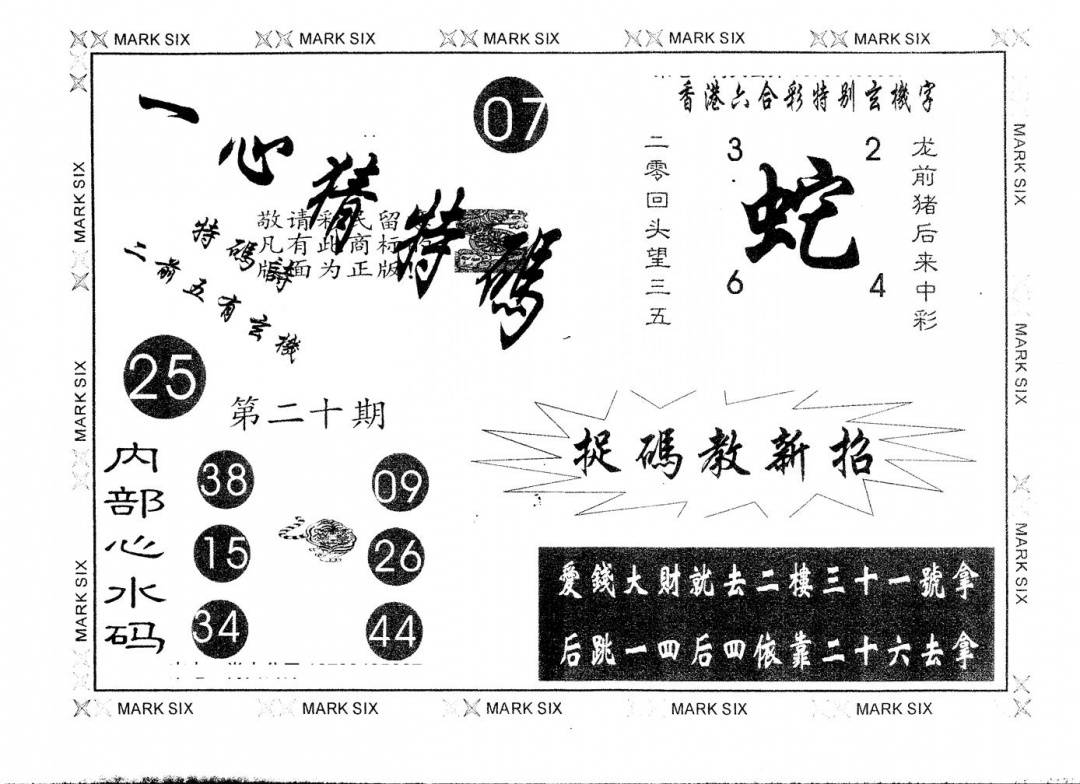 MARK SIX MARK SIX MARK SIX MARK SIX MARK SIX
一心猜特碼
07
敬请彩民留
凡有此商标的
版面为正版
特碼詩
二前五有玄機
香港六合彩特别玄機字
二零回头望三五
3 2
蛇
6 4
龙前猪后来中彩
25
第二十期
内部心水码
38 09
15 26
34 44
捉碼教新招
愛錢大財就去二樓三十一號拿
后跳一四后四依靠二十六去拿
MARK SIX
MARK SIX
MARK SIX
MARK SIX
MARK SIX
MARK SIX
MARK SIX MARK SIX MARK SIX MARK SIX MARK SIX